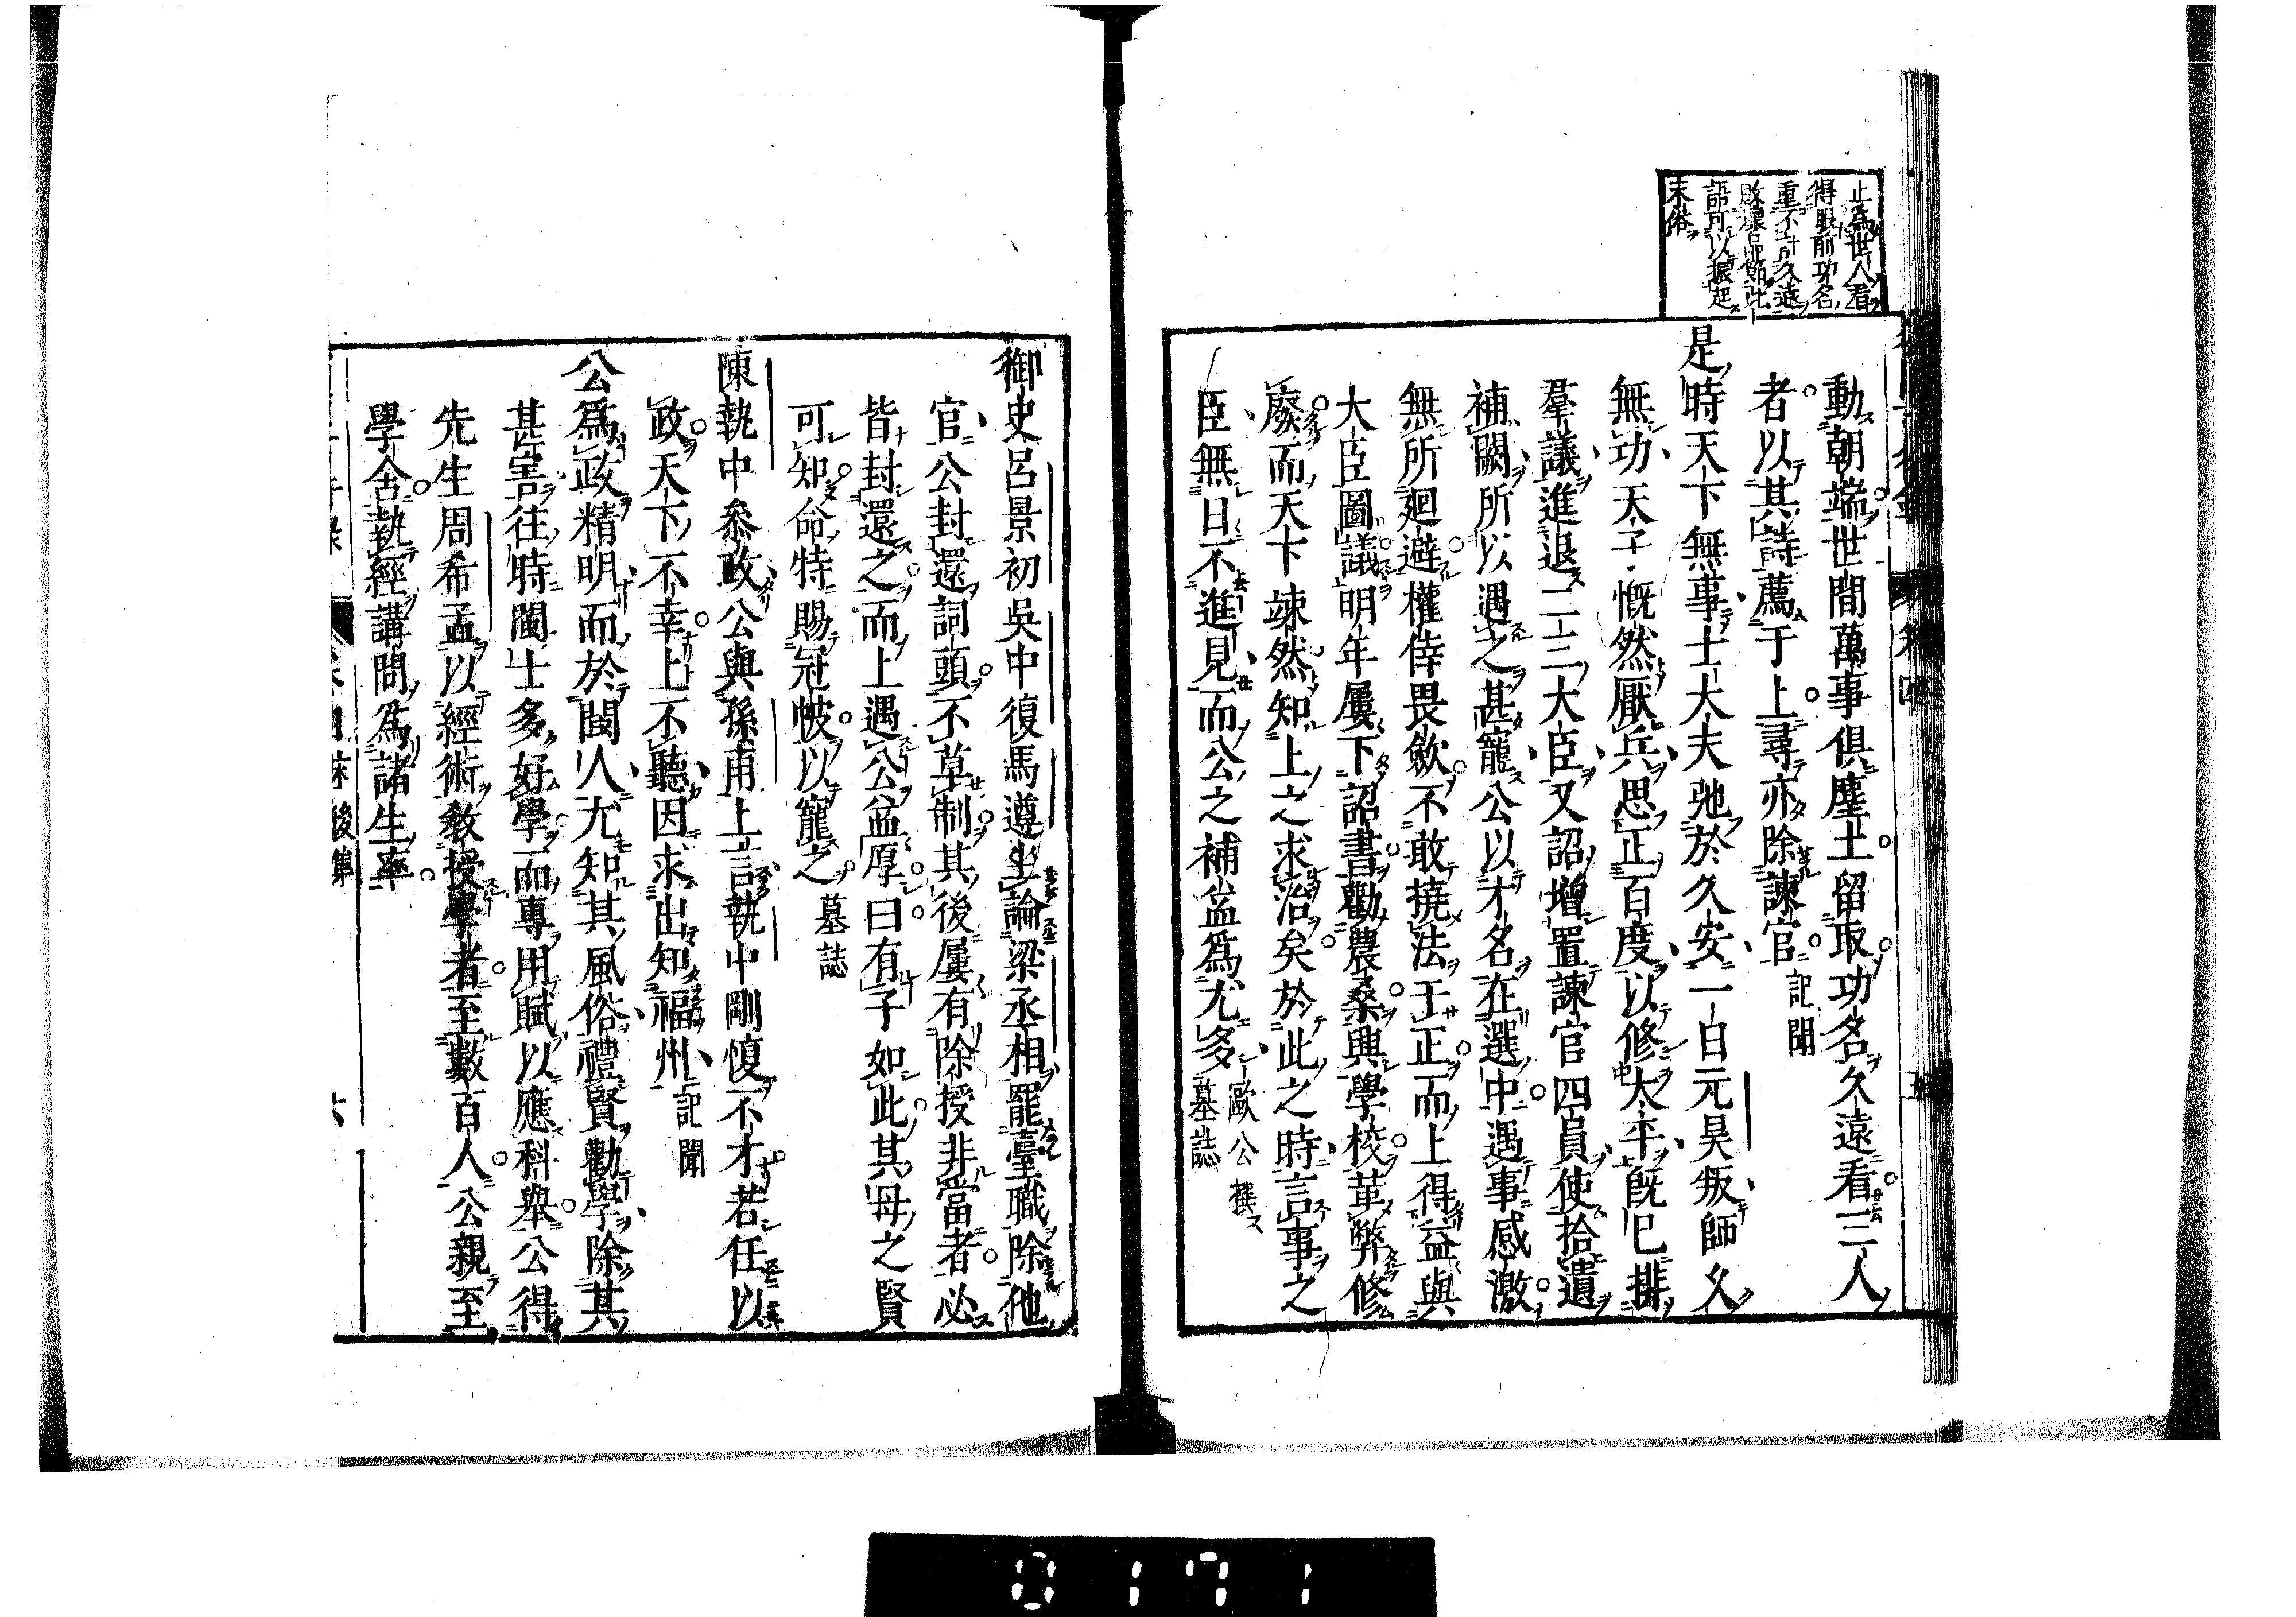 止爲世人看
得眼前功名
重不計久遠
敗壞品節此
語可以振起
末俗
動朝端世間萬事俱塵土留取功名久遠看三人
者以其詩薦于上尋亦除諫官 記聞
是時天下無事士大夫弛於久安一日元昊叛師久
無功天子慨然厭兵思正百度以修太平旣已排
羣議進退二三大臣又詔增置諫官四員使拾遺
補闕所以遇之甚寵公以才名在選中遇事感激
無所廻避權倖畏斂不敢撓法于正而上得益與
大臣圖議明年屢下詔書勸農桑興學校革弊修
廢而天下竦然知上之求治矣於此之時言事之
臣無日不進見而公之補益爲尤多 歐公撰墓誌
御史呂景初吳中復馬遵坐論梁丞相罷臺職除他
官公封還詞頭不草制其後屢有除授非當者必
皆封還之而上遇公益厚曰有子如此其母之賢
可知命特賜冠帔以寵之 墓誌
陳執中叅政公與孫甫上言執中剛愎不才若任以
政天下不幸上不聽因求出知福州 記聞
公爲政精明而於閩人尤知其風俗禮賢勸學除其
甚害往時閩士多好學而專用賦以應科舉公得
先生周希孟以經術敎授學者至數百人公親至
學舍執經講問爲諸生率
0171